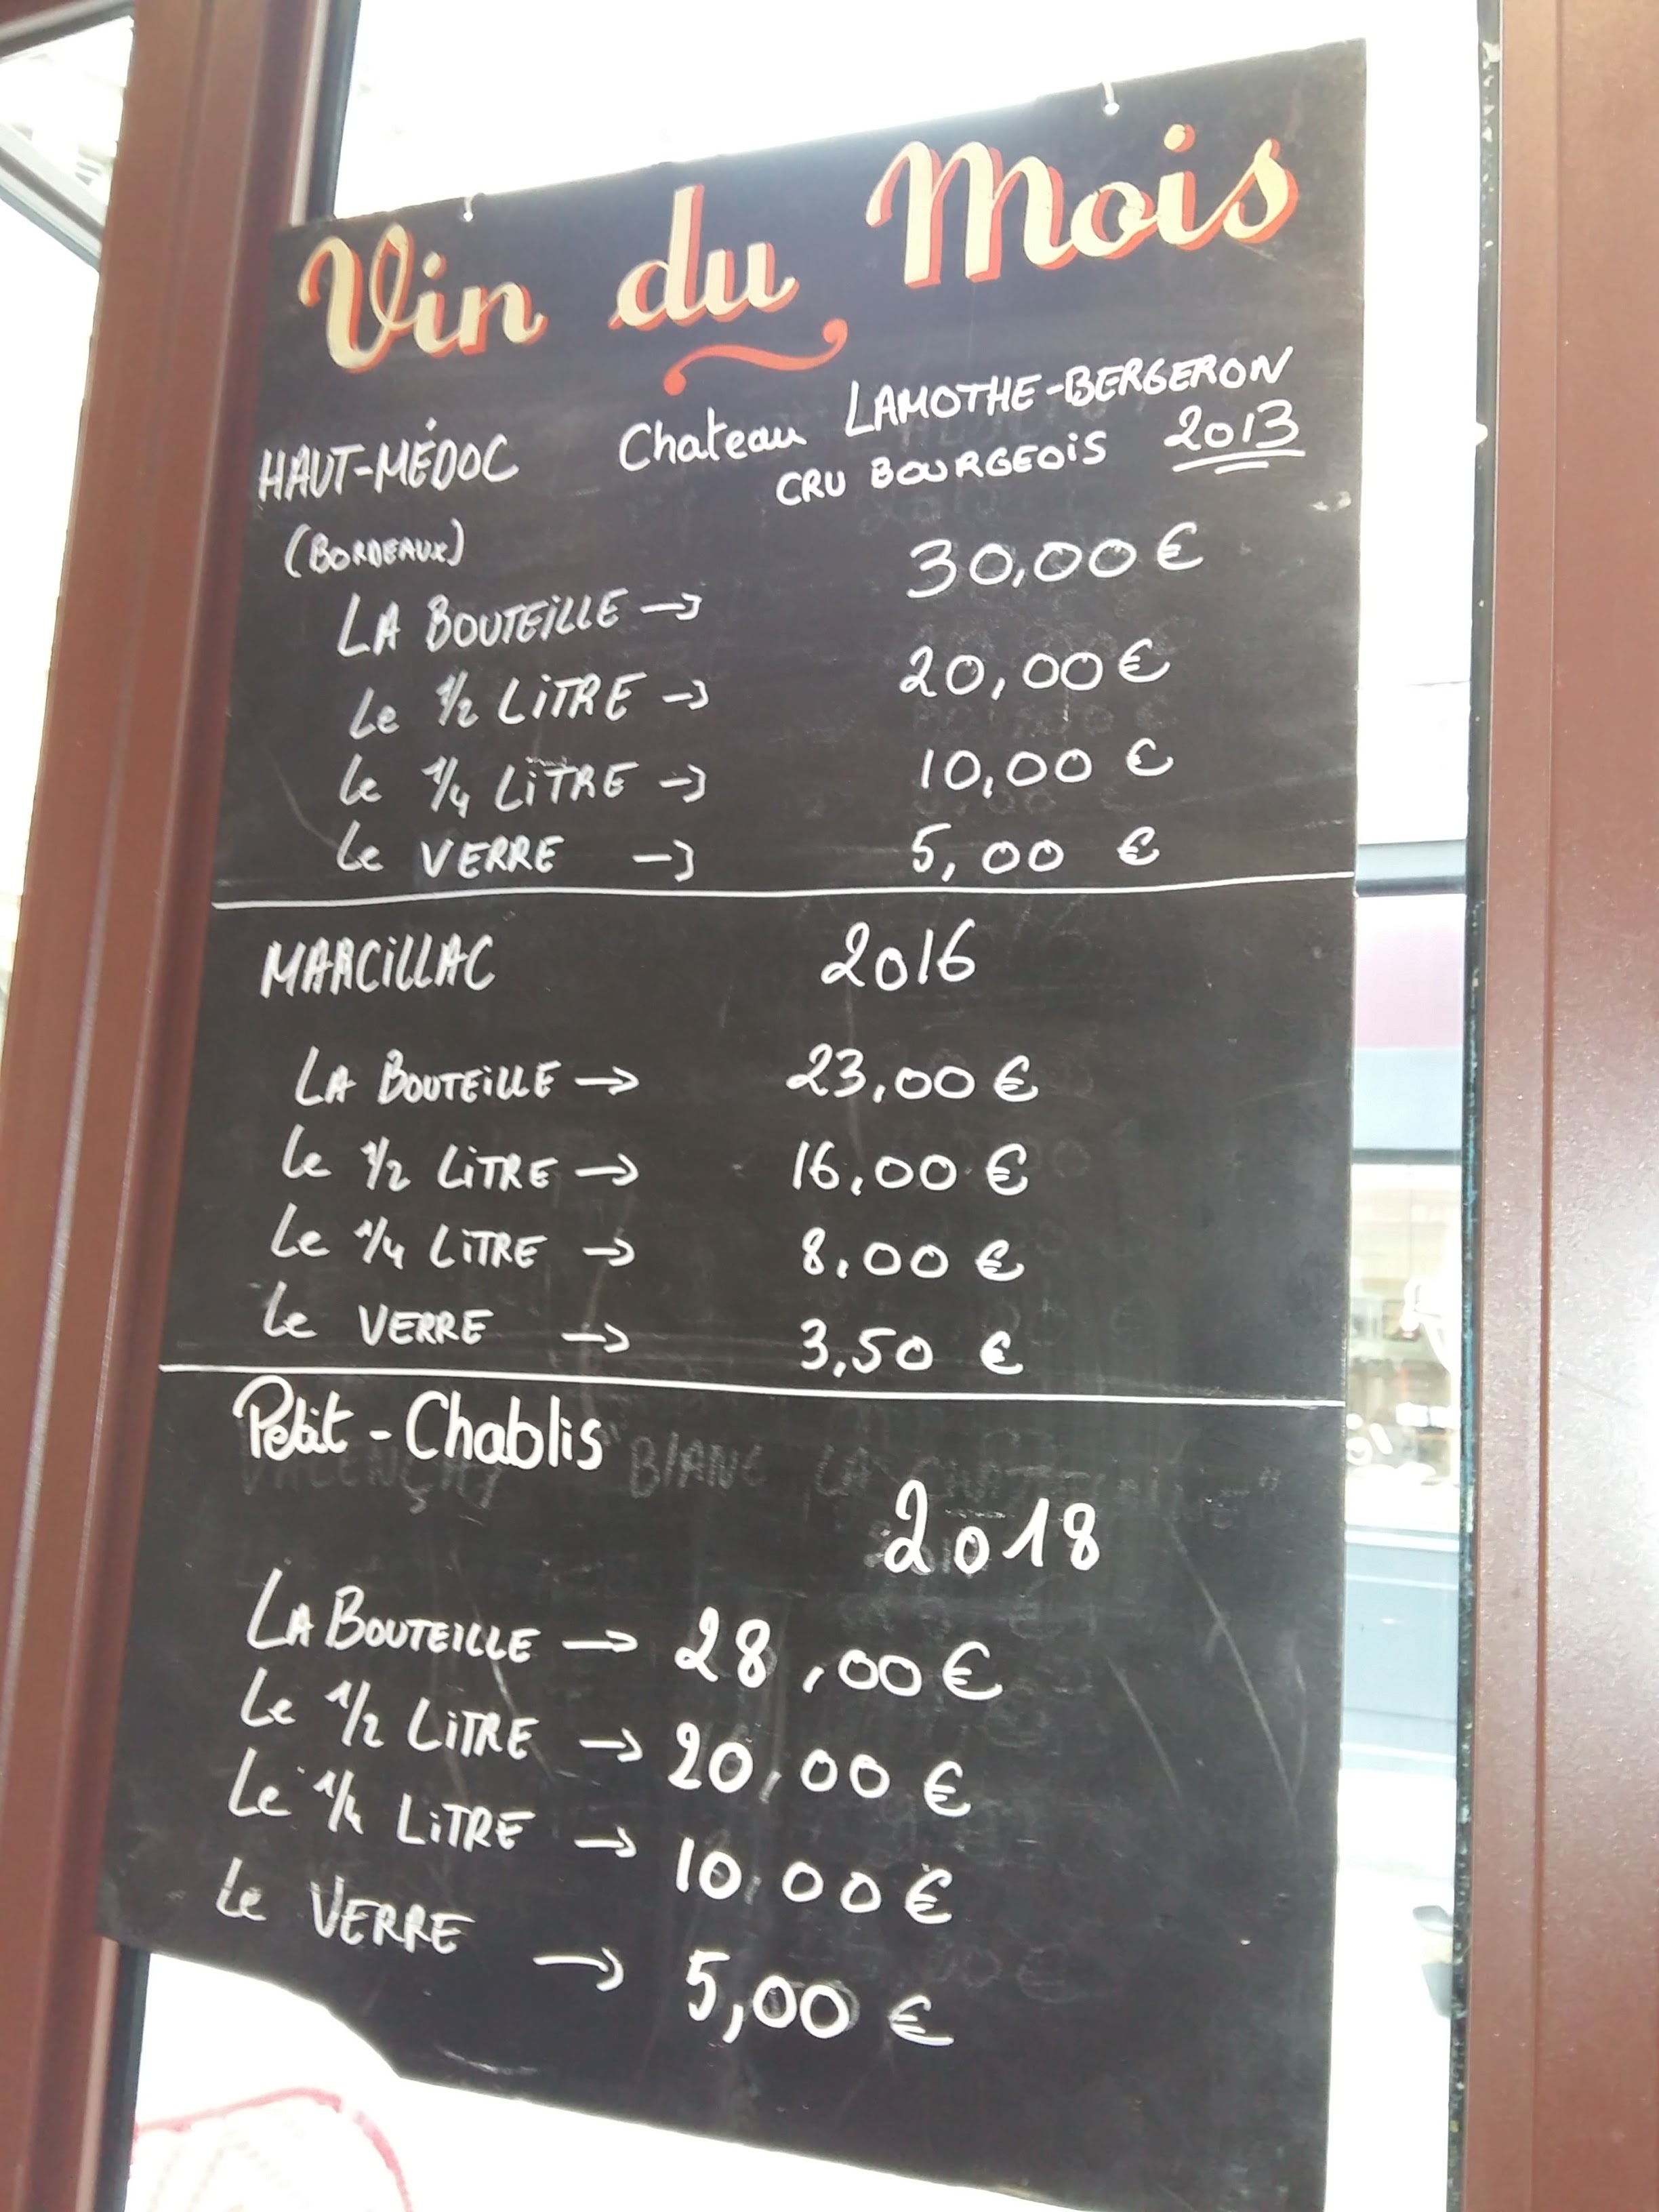 Vin du Mois
HAUT-MÉDOC Chateau LAMOTHE-BERGERON
CRU BOURGEOIS 2013
(BORDEAUX)
LA BOUTEILLE → 30,00 €
Le 1/2 LITRE → 20,00 €
Le 1/4 LITRE → 10,00 €
Le VERRE → 5,00 €
MARCILLAC 2016
LA BOUTEILLE → 23,00 €
Le 1/2 LITRE → 16,00 €
Le 1/4 LITRE → 8,00 €
Le VERRE → 3,50 €
Petit-Chablis
VALENÇAY BLANC LA
2018
LA BOUTEILLE → 28,00 €
Le 1/2 LITRE → 20,00 €
Le 1/4 LITRE → 10,00 €
Le VERRE → 5,00 €